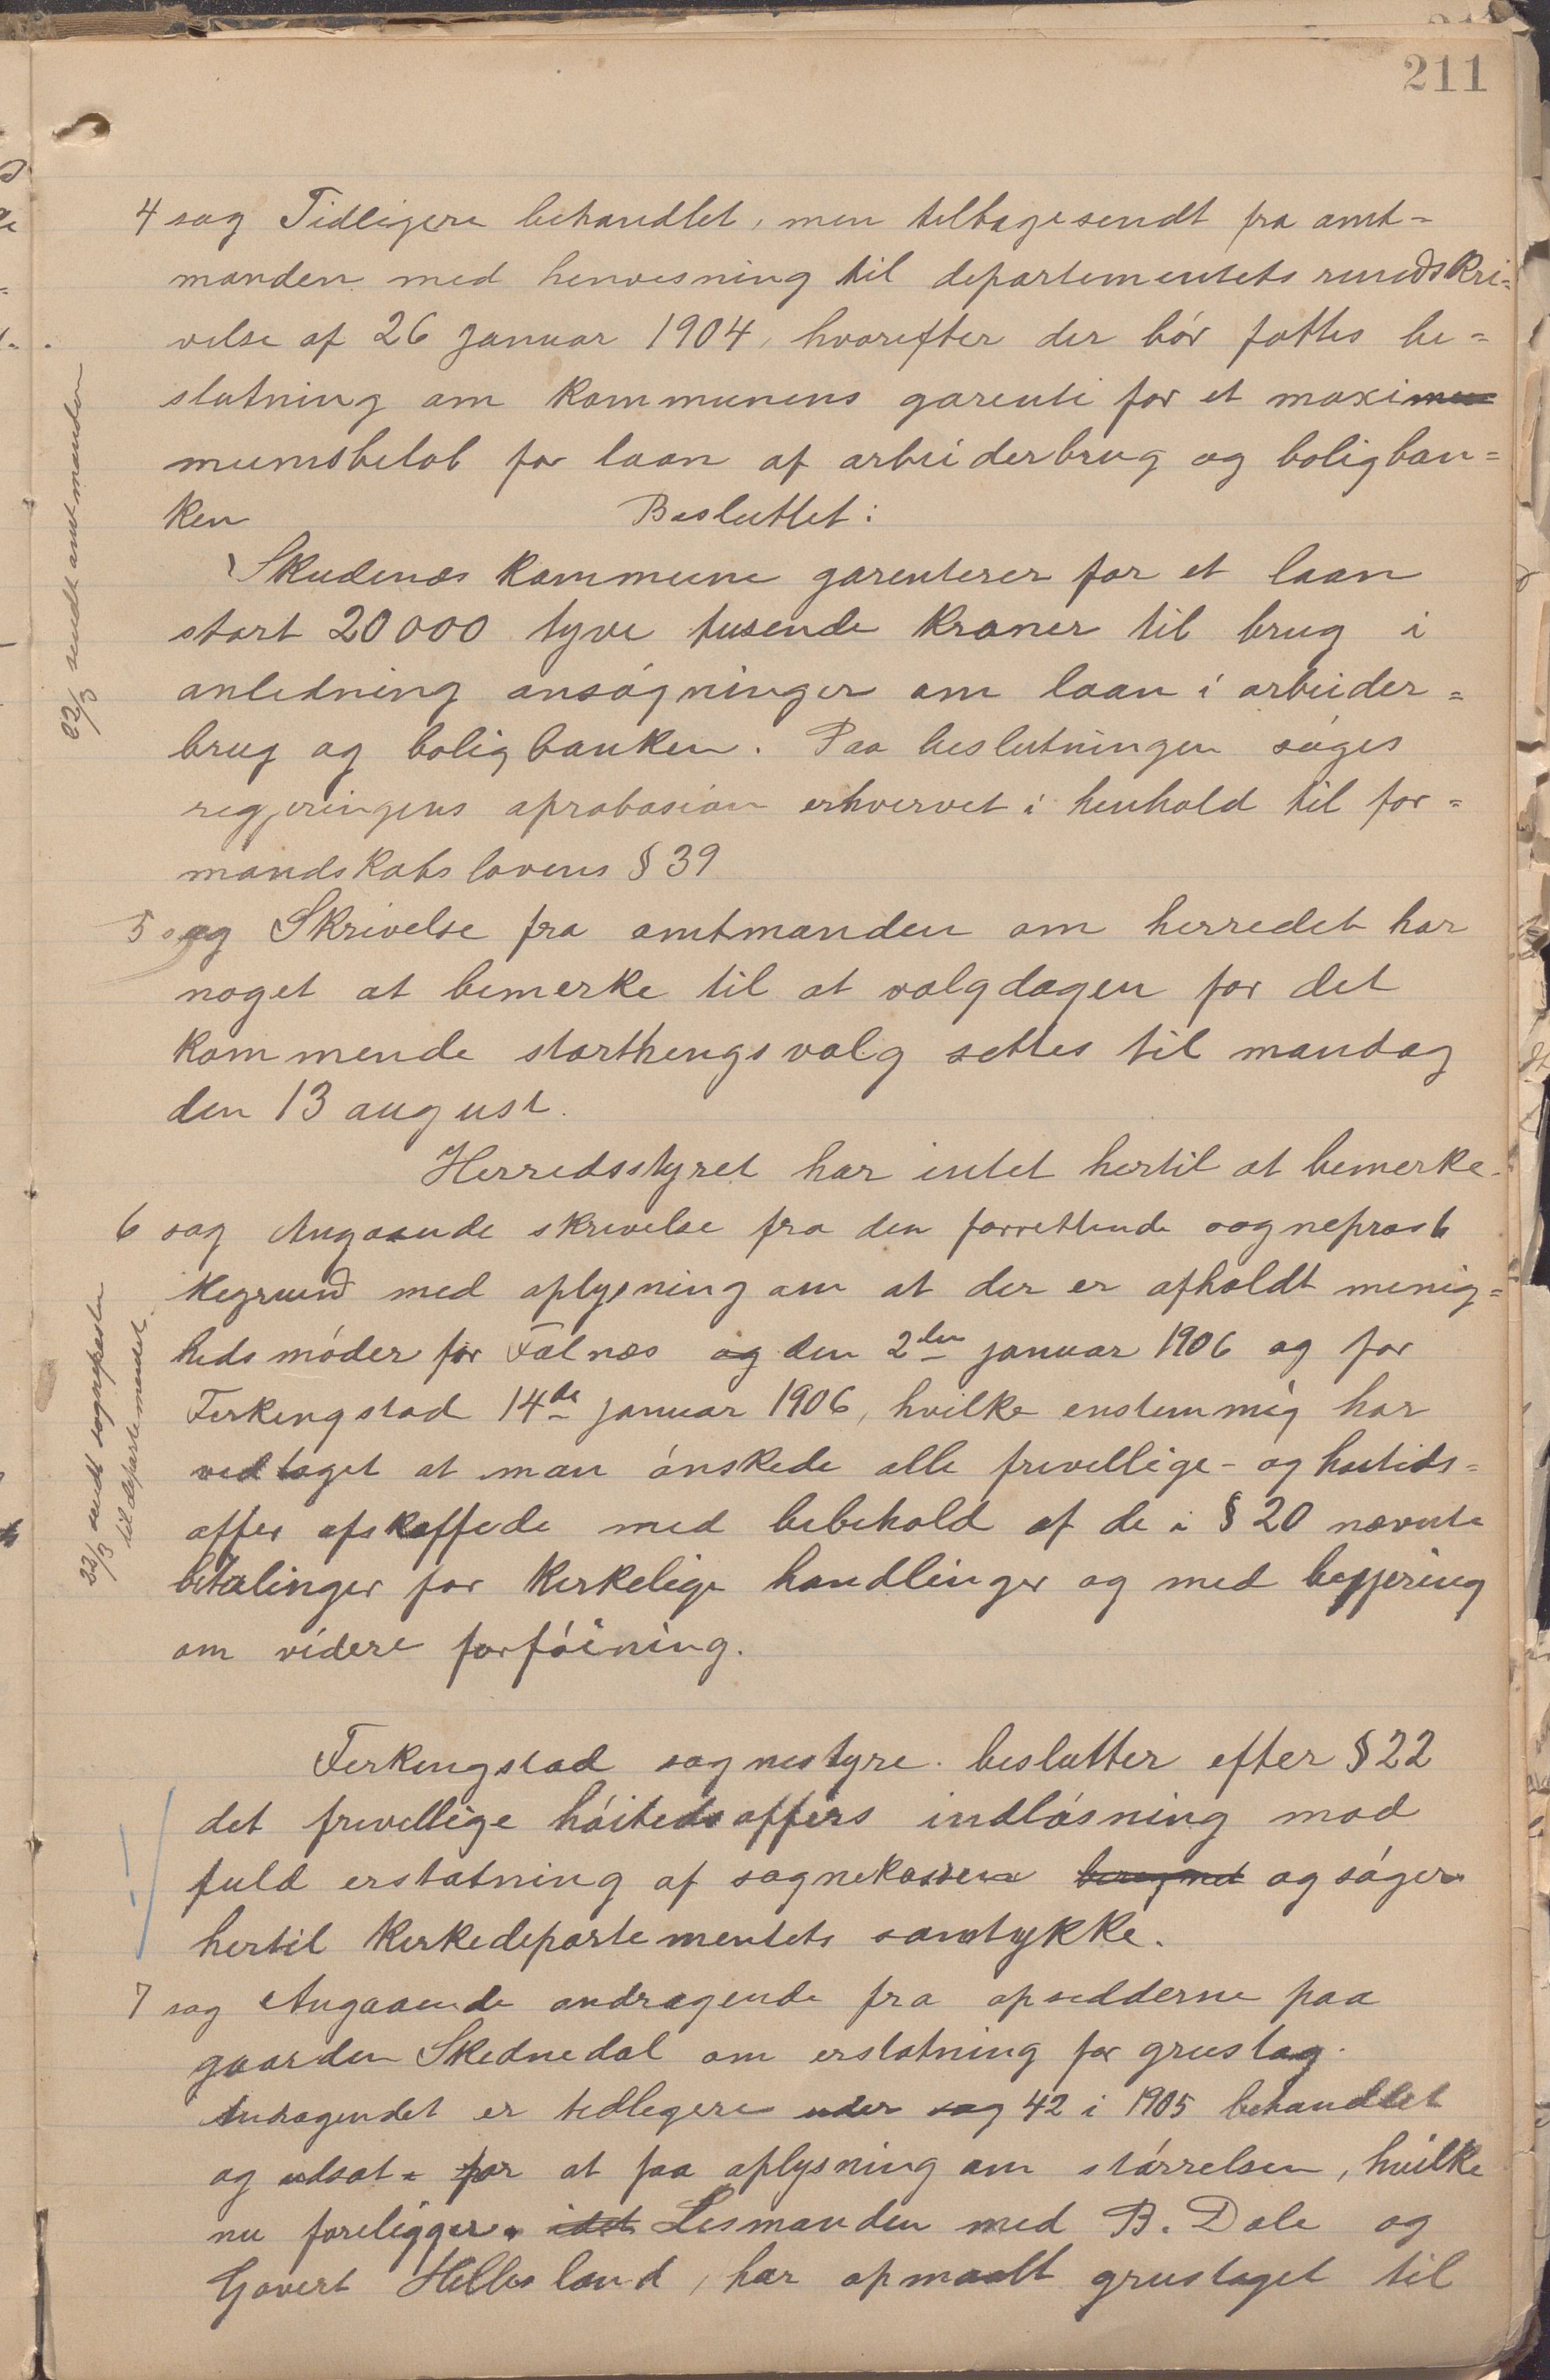 211
4 sag Tidligere behandlet, men tilbagesendt fra amt-
manden med henvesning til departementets rundskri-
velse af 26 januar 1904, hvorefter der bör fattes be-
slutning om kommunens garenti for et maxi
mumsbelöb for laan af arbeiderbrug og boligban-
ken Besluttet:
Skudenæs kommune garenterer for et laan
stort 20000 tyve tusende kroner til brug i
anledning ansögninger om laan i arbeider-
brug og boligbanken. Paa beslutningen söges
regjeringens aprobasion erhvervet i henhold til for-
mandskabslovens § 39
22/3 sendt amtmanden
5 sag Skrivelse fra amtmanden om herredet har
noget at bemerke til at valgdagen for det
kommende storthengsvalg settes til mandag
den 13 august.
Herredsstyret har intet hertil at bemerke.
6 sag Angaaende skrivelse fra den forrettende sogneprest
Kegrund med oplysning om at der er afholdt menig-
hedsmöder for Falnæs og den 2den januar 1906 og for
Ferkengstad 14de januar 1906, hvilke enstemmig har
vedtaget at man önskede alle frevellige- og höitids-
offer afskaffede med bebehold af de i § 20 nævnte
betalinger for kerkelige handlinger og med begjering
om videre forföining.
22/3 sendt sognepresten
til departementet.
Ferkengstad sognestyre beslutter efter § 22
det frevellige höiteds offers indlösning mod
fuld erstatning af sognekassen og söger
hertil kerkedepartementets samtykke.
7 sag Angaaende andragende fra opsedderne paa
gaarden Skednedal om erstatning for grustag.
Andragendet er tedlegere under sag 42 i 1905 behandlet
og udsat for at faa oplysning om störrelsen, hvilke
nu foreligger. idet Lesmanden med B. Dale og
Govert Hillesland, har opmaalt grustaget til